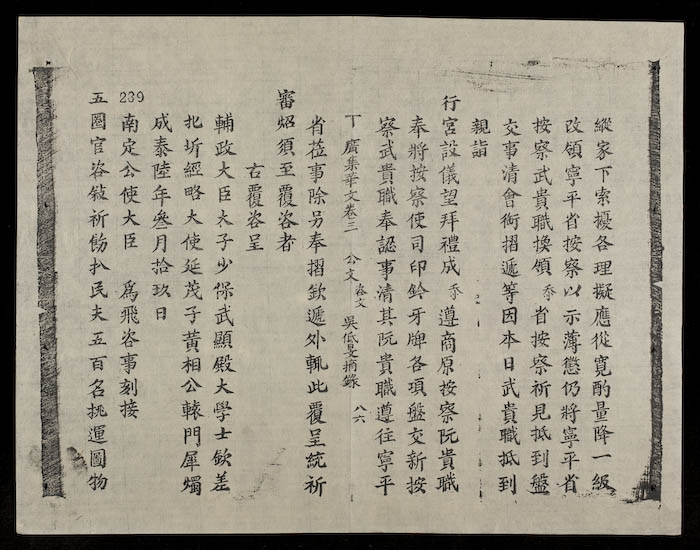 縱家下索擾各理擬應從寬酌量降一級
改領寧平省按察以示薄懲仍將寧平省
按察武貴職換領 忝 省按察祈見抵到盤
交事清會銜摺遞等因本日武貴職抵到
親詣
行宮設儀望拜禮成 忝 遵商原按察阮貴職
奉將按察使司印鈐牙牌各項盤交新按
察武貴職奉認事清其阮貴職遵往寧平
丁 廣集華文卷三 公文 咨文 吳低旻摘錄 八六
省莅事除另奉摺欽遞外輒此覆呈統祈
審炤須至覆咨者
右覆咨呈
輔政大臣太子少保武顯殿大學士欽差
北圻經略大使延茂子黃相公轅門犀燭
成泰陸年叁月拾玖日
239
南定公使大臣 爲飛咨事刻接
五圈官咨敍祈飭扒民夫五百名挑運圖物